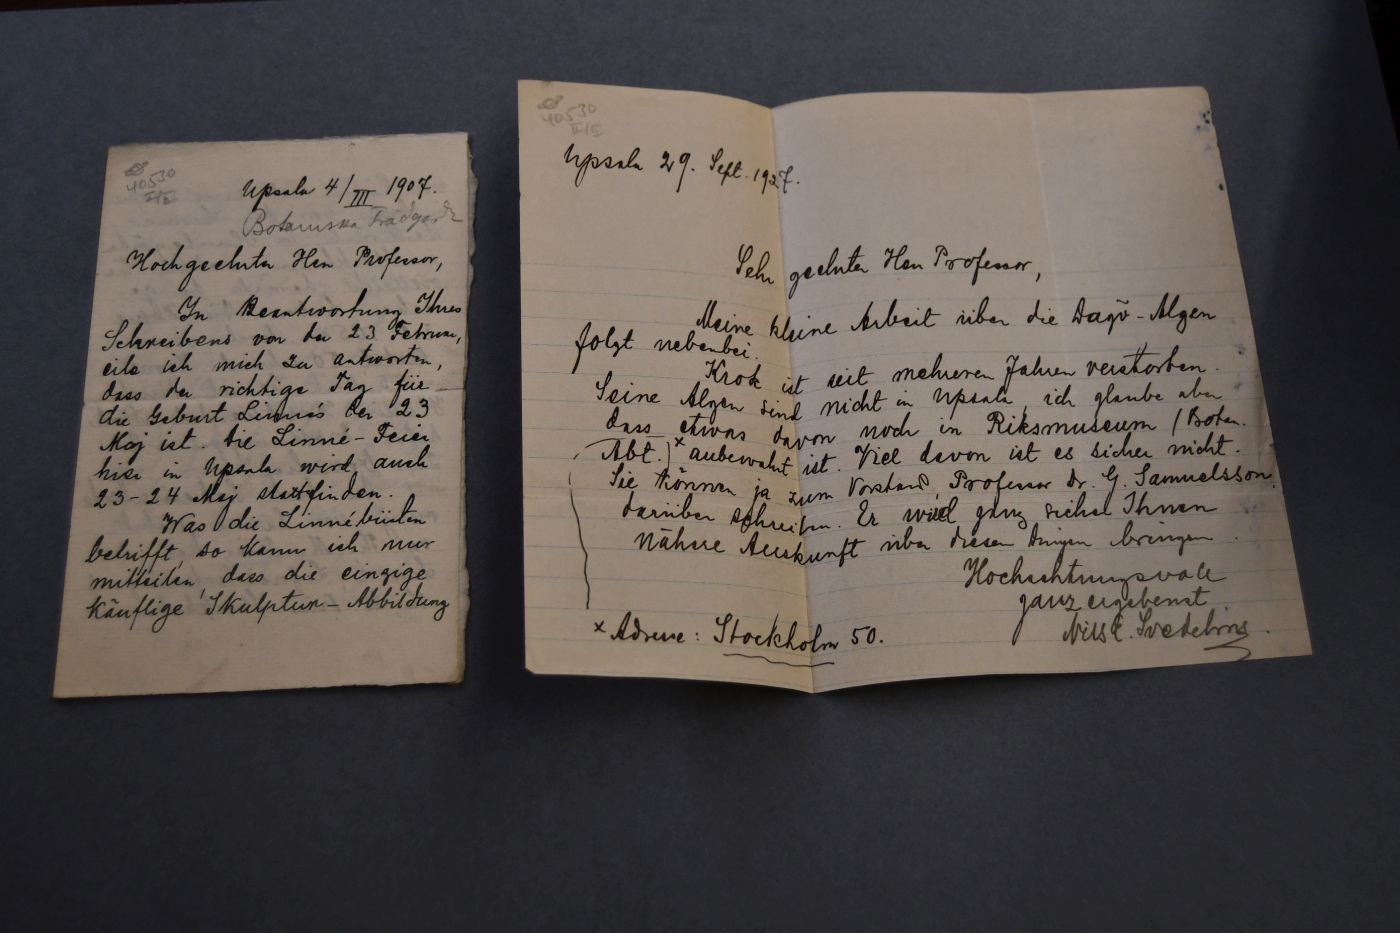 40530
I/II
Upsala 4/III 1907.
Botaniska Trädgård
Hochgeehrter Herr Professor,
In Beantwortung Ihres
Schreibens von der 23 Februar,
eile ich mich zu antworten,
dass der richtige Tag für
die Geburt Linnés der 23
Maj ist. Die Linné-Feier
hier in Upsala wird auch
23-24 Maj stattfinden.
Was die Linnébüsten
betrifft, so kann ich nur
mitteilen, dass die einzige
käuflige Skulptur-Abbildung
40530
II/II
Upsala 29. Sept. 1927.
Sehr geehrter Herr Professor,
Meine kleine Arbeit über die Dagö-Algen
folgt nebenbei.
Krok ist seit mehreren Jahren verstorben.
Seine Algen sind nicht in Upsala, ich glaube aber
dass etwas davon noch in Riksmuseum (Botan.
Abt.)x aubewahrt ist. Viel davon ist es sicher nicht.
Sie können ja zum Vorstand, Professor Dr. G. Samuelsson,
darüber schreiben. Er wird ganz sicher Ihnen
nähere Auskunft über diesen Dingen bringen.
Hochachtungsvoll
ganz ergebenst
Nils E. Svedelius.
x Adresse: Stockholm 50.